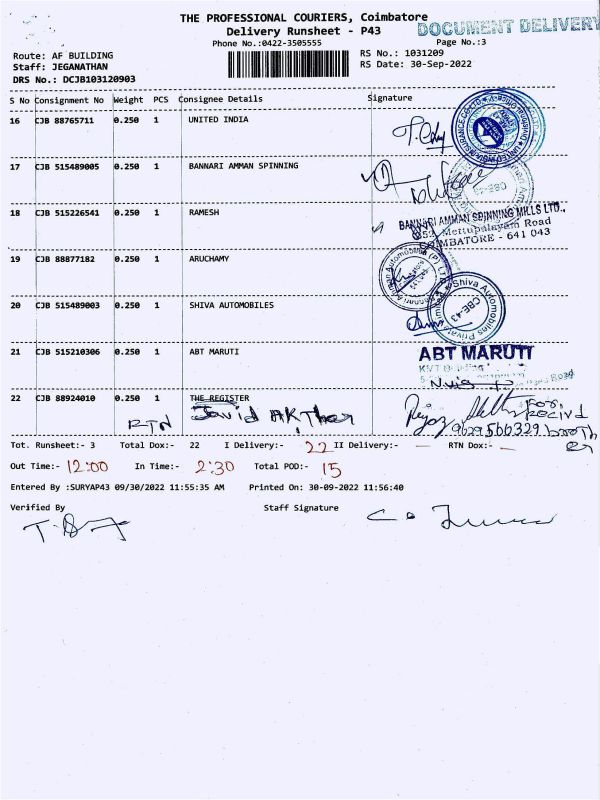 THE PROFESSIONAL COURIERS, Coimbatore
DOCUMENT DELIVERY
Delivery Runsheet - P43
Phone No.:0422-3505555
Page No.:3
Route: AF BUILDING
RS No.: 1031209
Staff: JEGANATHAN
RS Date: 30-Sep-2022
DRS No.: DCJB103120903
S No Consignment No Weight PCS Consignee Details Signature
16 CJB 88765711 0.250 1 UNITED INDIA
17 CJB 515489005 0.250 1 BANNARI AMMAN SPINNING
CBE-43
18 CJB 515226541 0.250 1 RAMESH
BANNARI AMMAN SPINNING MILLS LTD.,
252, Mettupalayam Road
COIMBATORE - 641 043
19 CJB 88877182 0.250 1 ARUCHAMY
20 CJB 515489003 0.250 1 SHIVA AUTOMOBILES
Shiva Automobiles Private Limited
CBE-43
21 CJB 515210306 0.250 1 ABT MARUTI
ABT MARUTI
22 CJB 88924010 0.250 1 THE REGISTER
RTN
9629566329
Tot. Runsheet:- 3 Total Dox:- 22 I Delivery:- 22 II Delivery:- - RTN Dox:- -
Out Time:- 12:00 In Time:- 2:30 Total POD:- 15
Entered By :SURYAP43 09/30/2022 11:55:35 AM Printed On: 30-09-2022 11:56:40
Verified By Staff Signature